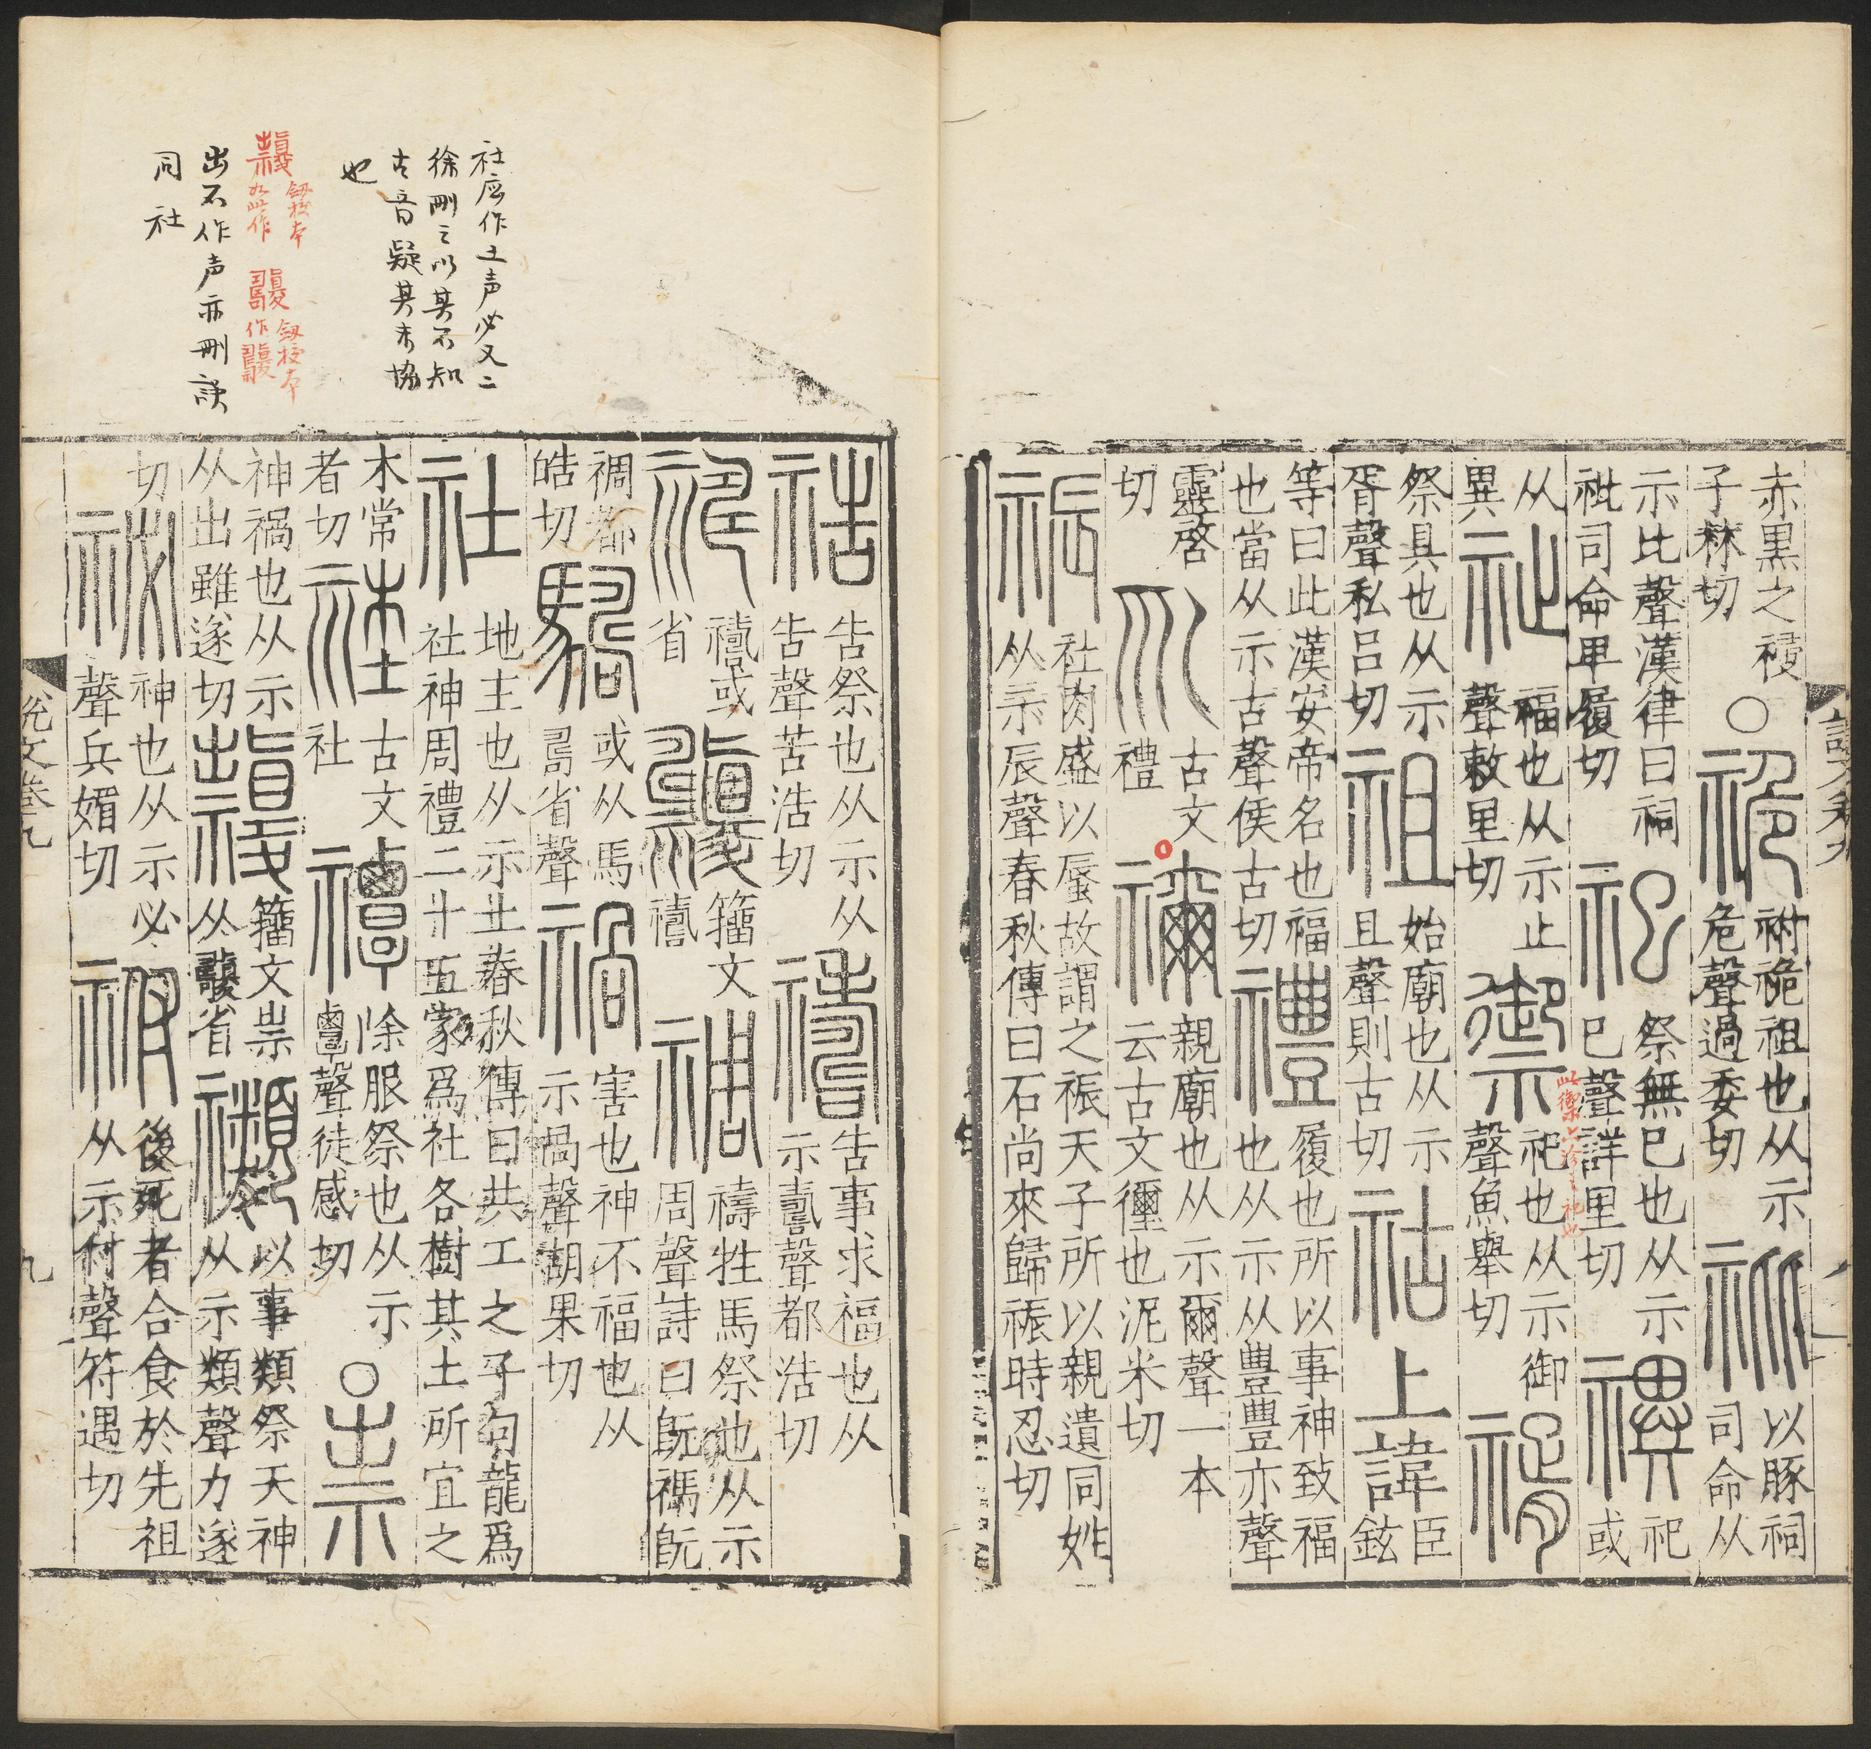 赤黑之祲
子椕切
○
祪
祔祪祖也从示
危聲過委切
祉
以豚祠司命从
示比聲漢律曰祠
祉司命甲履切
祀
祭無巳也从示
巳聲詳里切
禩
祀或
从異
祉
福也从示止
聲敕里切
禦
祀也从示御
聲魚舉切
祭具也从示
胥聲私呂切
祖
始廟也从示
且聲則古切
祜
上諱
臣鉉
等曰此漢安帝名也福
也當从示古聲侯古切
禮
履也所以事神致福
也从示从豊豊亦聲
靈啓
切
古文
禮
禰
親廟也从示爾聲一本
云古文禰也泥米切
祳
社肉盛以蜃故謂之祳天子所以親遺同姓
从示辰聲春秋傳曰石尚來歸祳時忍切
祰
告祭也从示从
告聲苦浩切
禱
告事求福也从
示壽聲都浩切
禱或
省
籒文
禱
禂
禱牲馬祭也从示
周聲詩曰旣禡旣
禂都
皓切
或从馬
壽省聲
禍
害也神不福也从
示咼聲胡果切
社
地主也从示土春秋傳曰共工之子句龍爲
社神周禮二十五家爲社各樹其土所宜之
木常
者切
古文
社
禫
除服祭也从示
覃聲徒感切
○
祟
神禍也从示
从出雖遂切
籒文祟
从省
禷
以事類祭天神
从示類聲力遂
切
祕
神也从示必
聲兵媚切
祔
後死者合食於先祖
从示付聲符遇切
說文卷九
九
社應作土声必又二
徐刪之以其不知
古音疑其未協
也
出不作声亦刪誤
同社